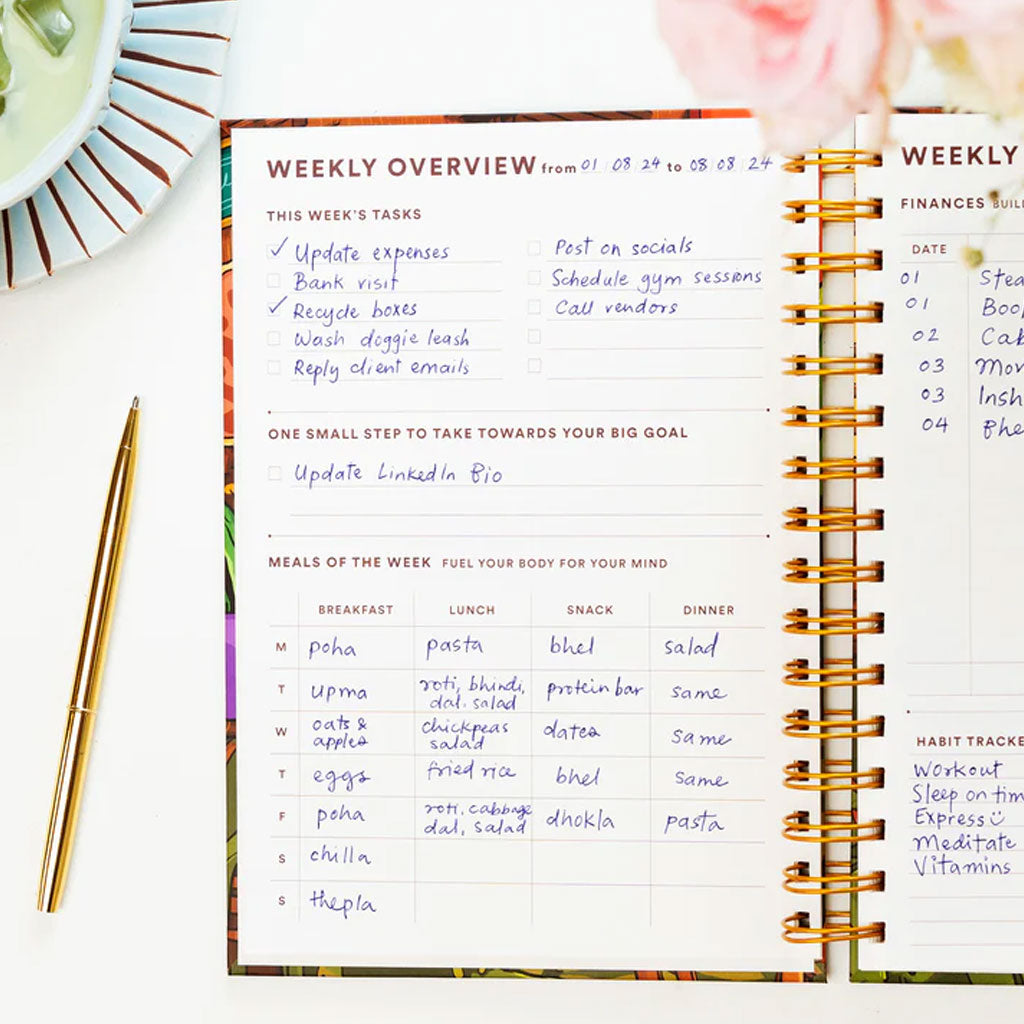 WEEKLY OVERVIEW from 01 08 24 to 08 08 24
THIS WEEK'S TASKS
Update expenses
Bank visit
Recycle boxes
Wash doggie leash
Reply client emails
Post on socials
Schedule gym sessions
Call vendors
ONE SMALL STEP TO TAKE TOWARDS YOUR BIG GOAL
Update LinkedIn Bio
MEALS OF THE WEEK FUEL YOUR BODY FOR YOUR MIND
BREAKFAST LUNCH SNACK DINNER
M poha pasta bhel salad
T upma roti, bhindi, dal, salad protein bar same
W oats & apples chickpeas salad dates same
T eggs fried rice bhel same
F poha roti, cabbage dal, salad dhokla pasta
S chilla
S thepla
WEEKLY
FINANCES
DATE
01
01
02
03
03
04
HABIT
Workout
Sleep on
Express
Meditate
Vitamins